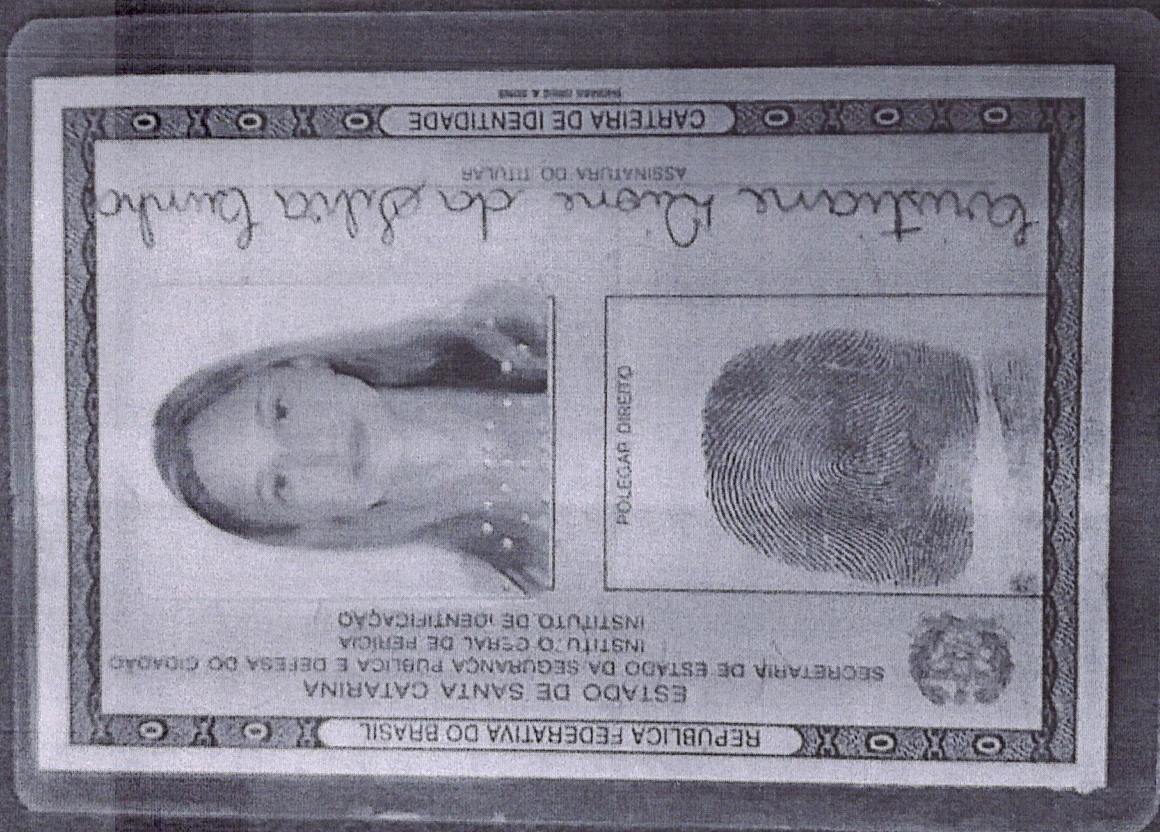 REPÚBLICA FEDERATIVA DO BRASIL
ESTADO DE SANTA CATARINA
SECRETARIA DE ESTADO DA SEGURANÇA PÚBLICA E DEFESA DO CIDADÃO
INSTITUTO GERAL DE PERÍCIA
INSTITUTO DE IDENTIFICAÇÃO
POLEGAR DIREITO
Cristiane Dione da Silva Cunha
ASSINATURA DO TITULAR
CARTEIRA DE IDENTIDADE